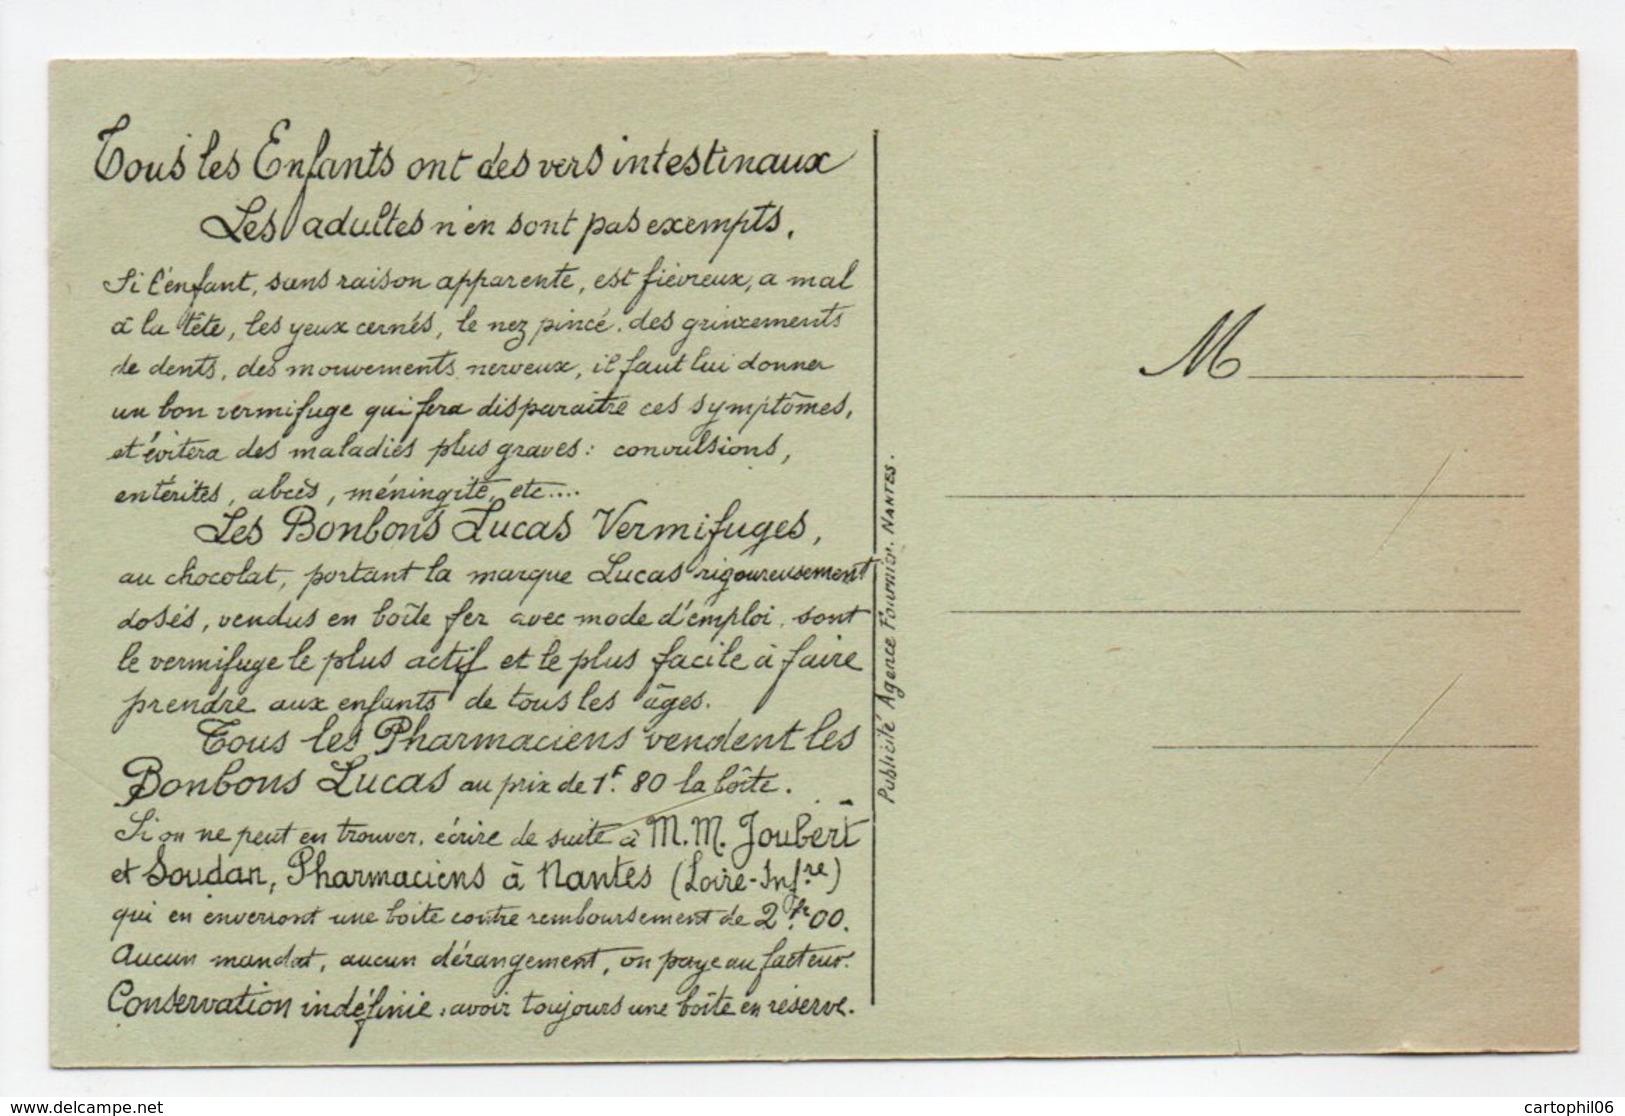 Tous les Enfants ont des vers intestinaux
Les adultes n'en sont pas exempts.
Si l'enfant, sans raison apparente, est fiévreux, a mal
à la tête, les yeux cernés, le nez pincé, des grincements
de dents, des mouvements nerveux, il faut lui donner
un bon vermifuge qui fera disparaitre ces symptômes,
et évitera des maladies plus graves: convulsions,
entérites, abcès, méningite, etc....
Les Bonbons Lucas Vermifuges,
au chocolat, portant la marque Lucas rigoureusement
dosés, vendus en boîte fer avec mode d'emploi, sont
le vermifuge le plus actif et le plus facile à faire
prendre aux enfants de tous les âges.
Tous les Pharmaciens vendent les
Bonbons Lucas au prix de 1F. 80 la boîte.
Si on ne peut en trouver, écrire de suite à M.M. Joubert
et Soudan, Pharmaciens à Nantes (Loire-Infre)
qui en enverront une boite contre remboursement de 2fr.00.
Aucun mandat, aucun dérangement, on paye au facteur.
Conservation indéfinie, avoir toujours une boîte en réserve.
Publicité Agence Fournier. NANTES.
M
cartophil06
www.delcampe.net